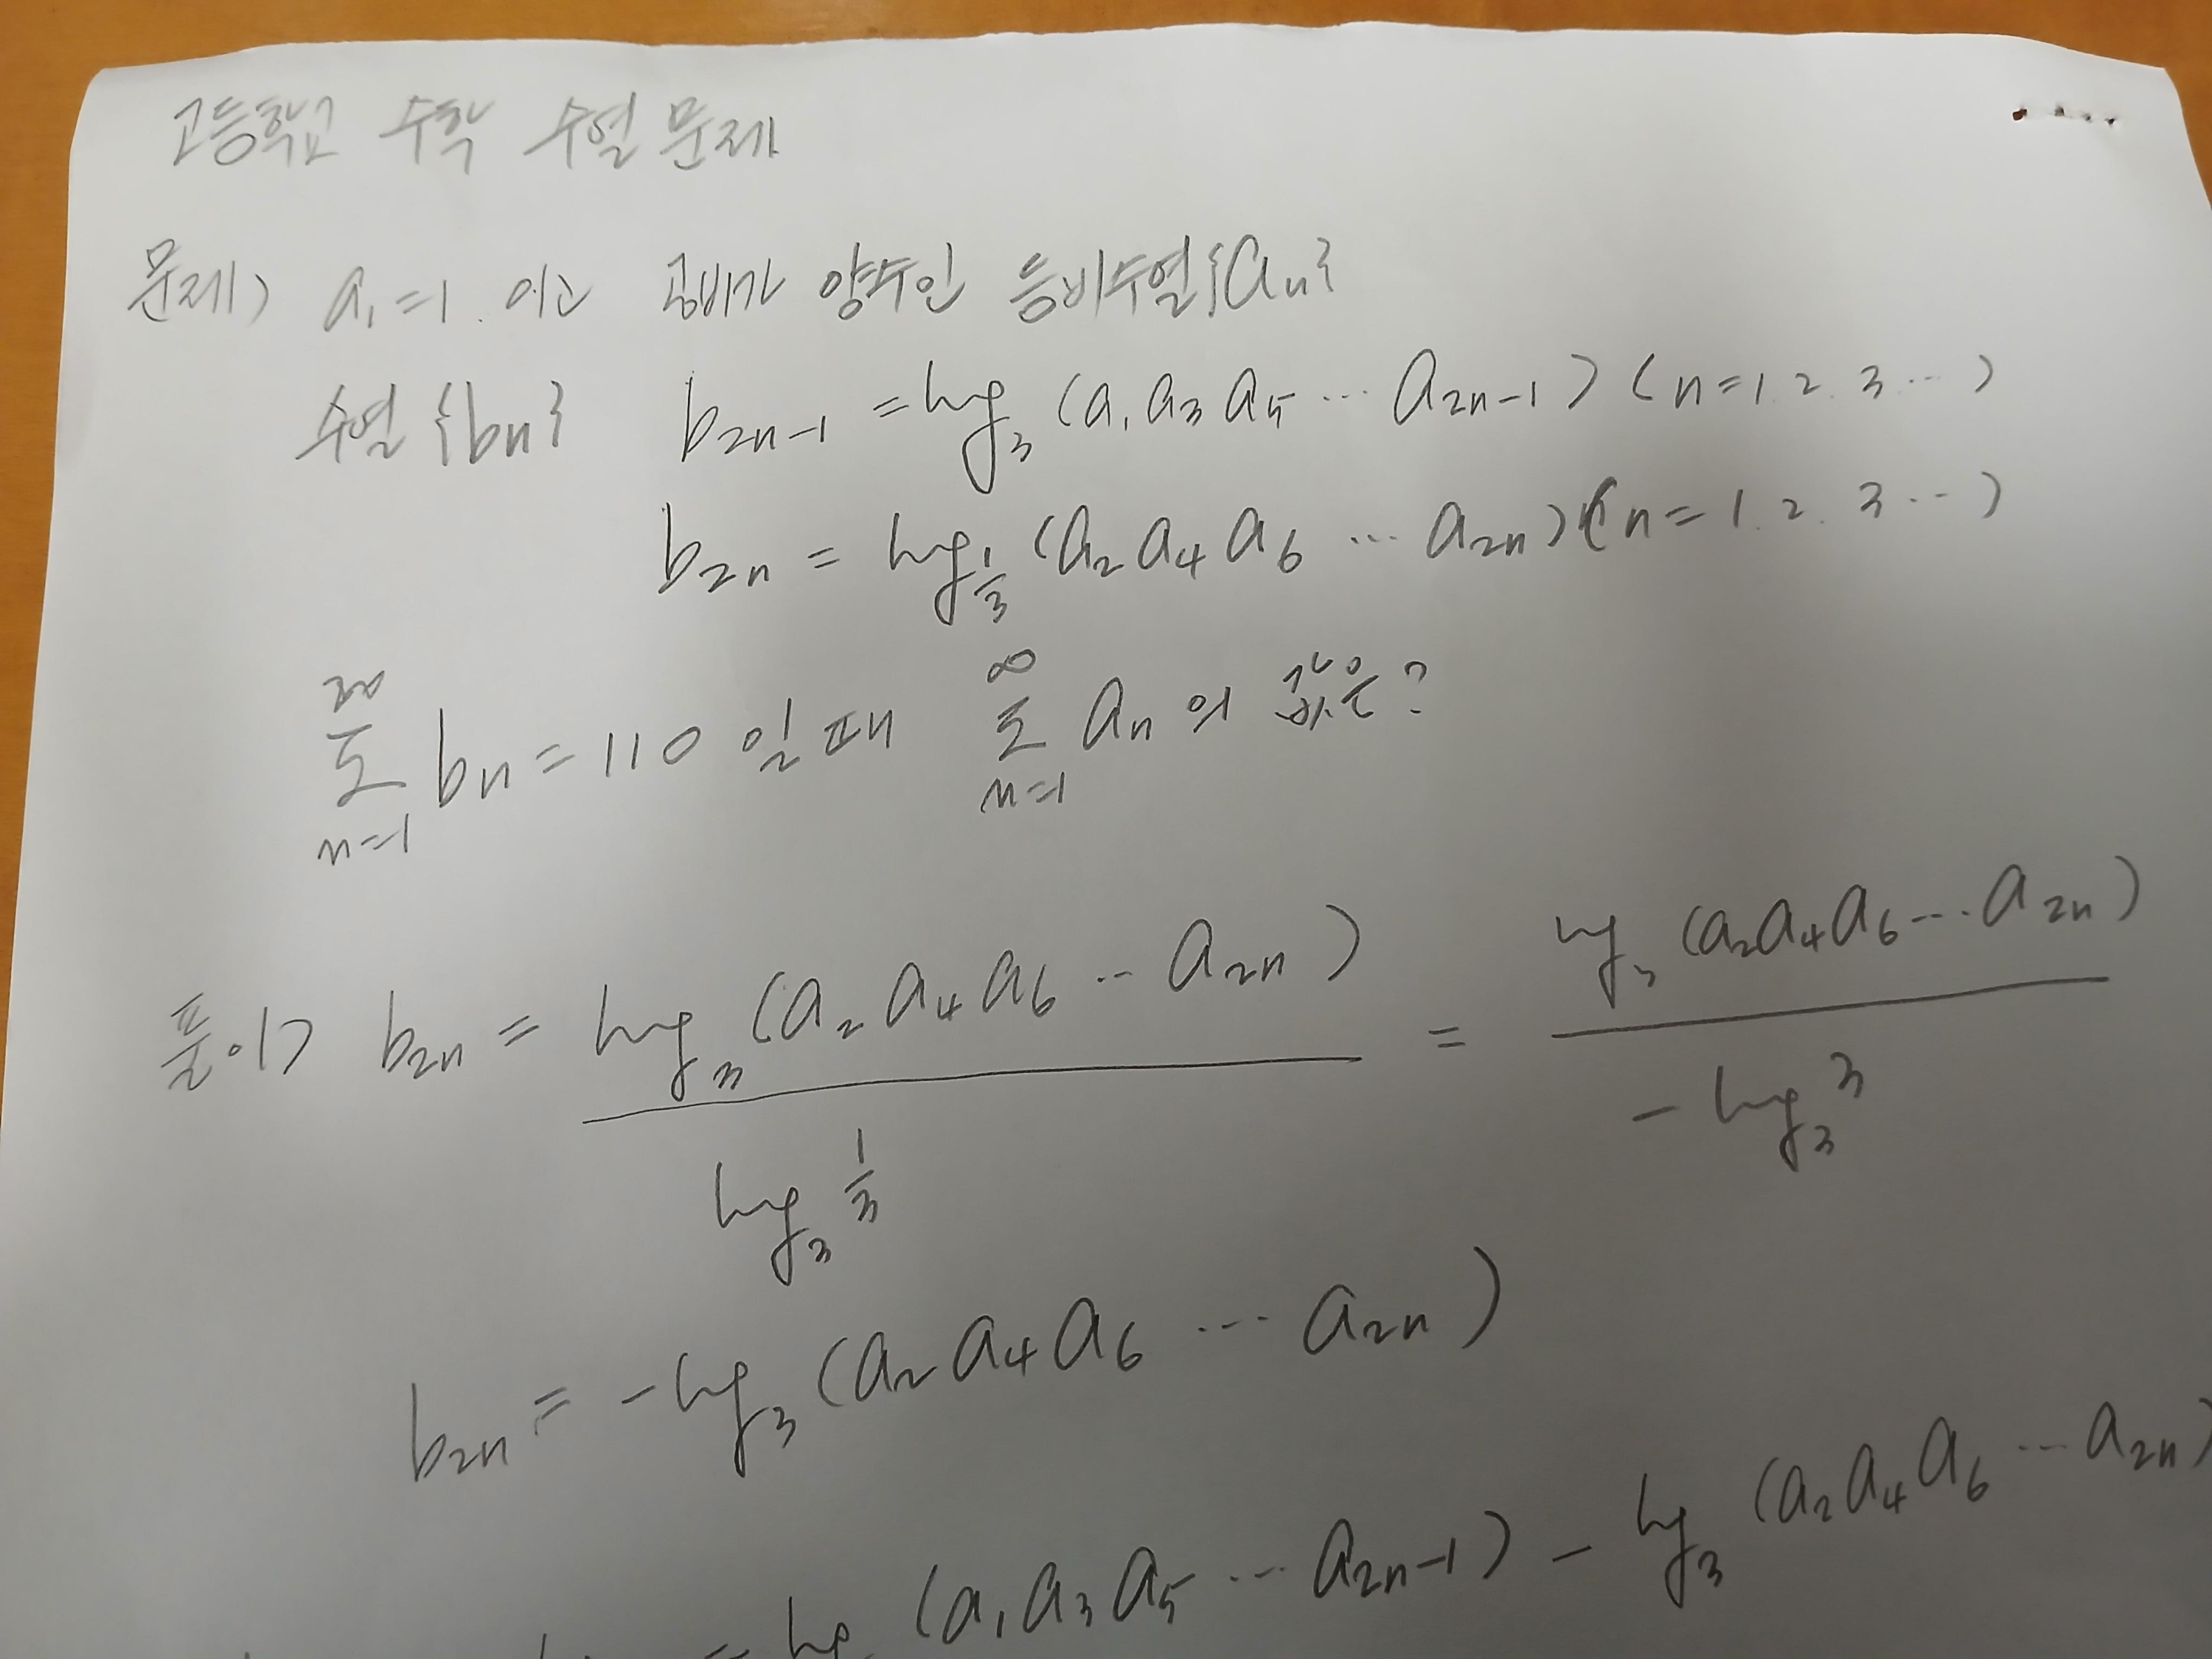 고등학교 수학 수열 문제
문제) a₁=1 이고 공비가 양수인 등비수열{aₙ}
수열 {bn} b₂ₙ₋₁ = log₃ (a₁ a₃ a₅ ⋯ a₂ₙ₋₁) (n=1. 2. 3 ⋯)
b₂ₙ = log_{1/3} (a₂ a₄ a₆ ⋯ a₂ₙ) (n=1. 2. 3 ⋯)
∑_{n=1}^{20} bn = 110 일 때 ∑_{n=1}^{∞} aₙ 의 값은?
풀이) b₂ₙ = log₃ (a₂ a₄ a₆ ⋯ a₂ₙ) / log₃ 1/3 = log₃ (a₂ a₄ a₆ ⋯ a₂ₙ) / -log₃ 3
b₂ₙ = -log₃ (a₂ a₄ a₆ ⋯ a₂ₙ)
(a₁ a₃ a₅ ⋯ a₂ₙ₋₁) - log₃ (a₂ a₄ a₆ ⋯ a₂ₙ)